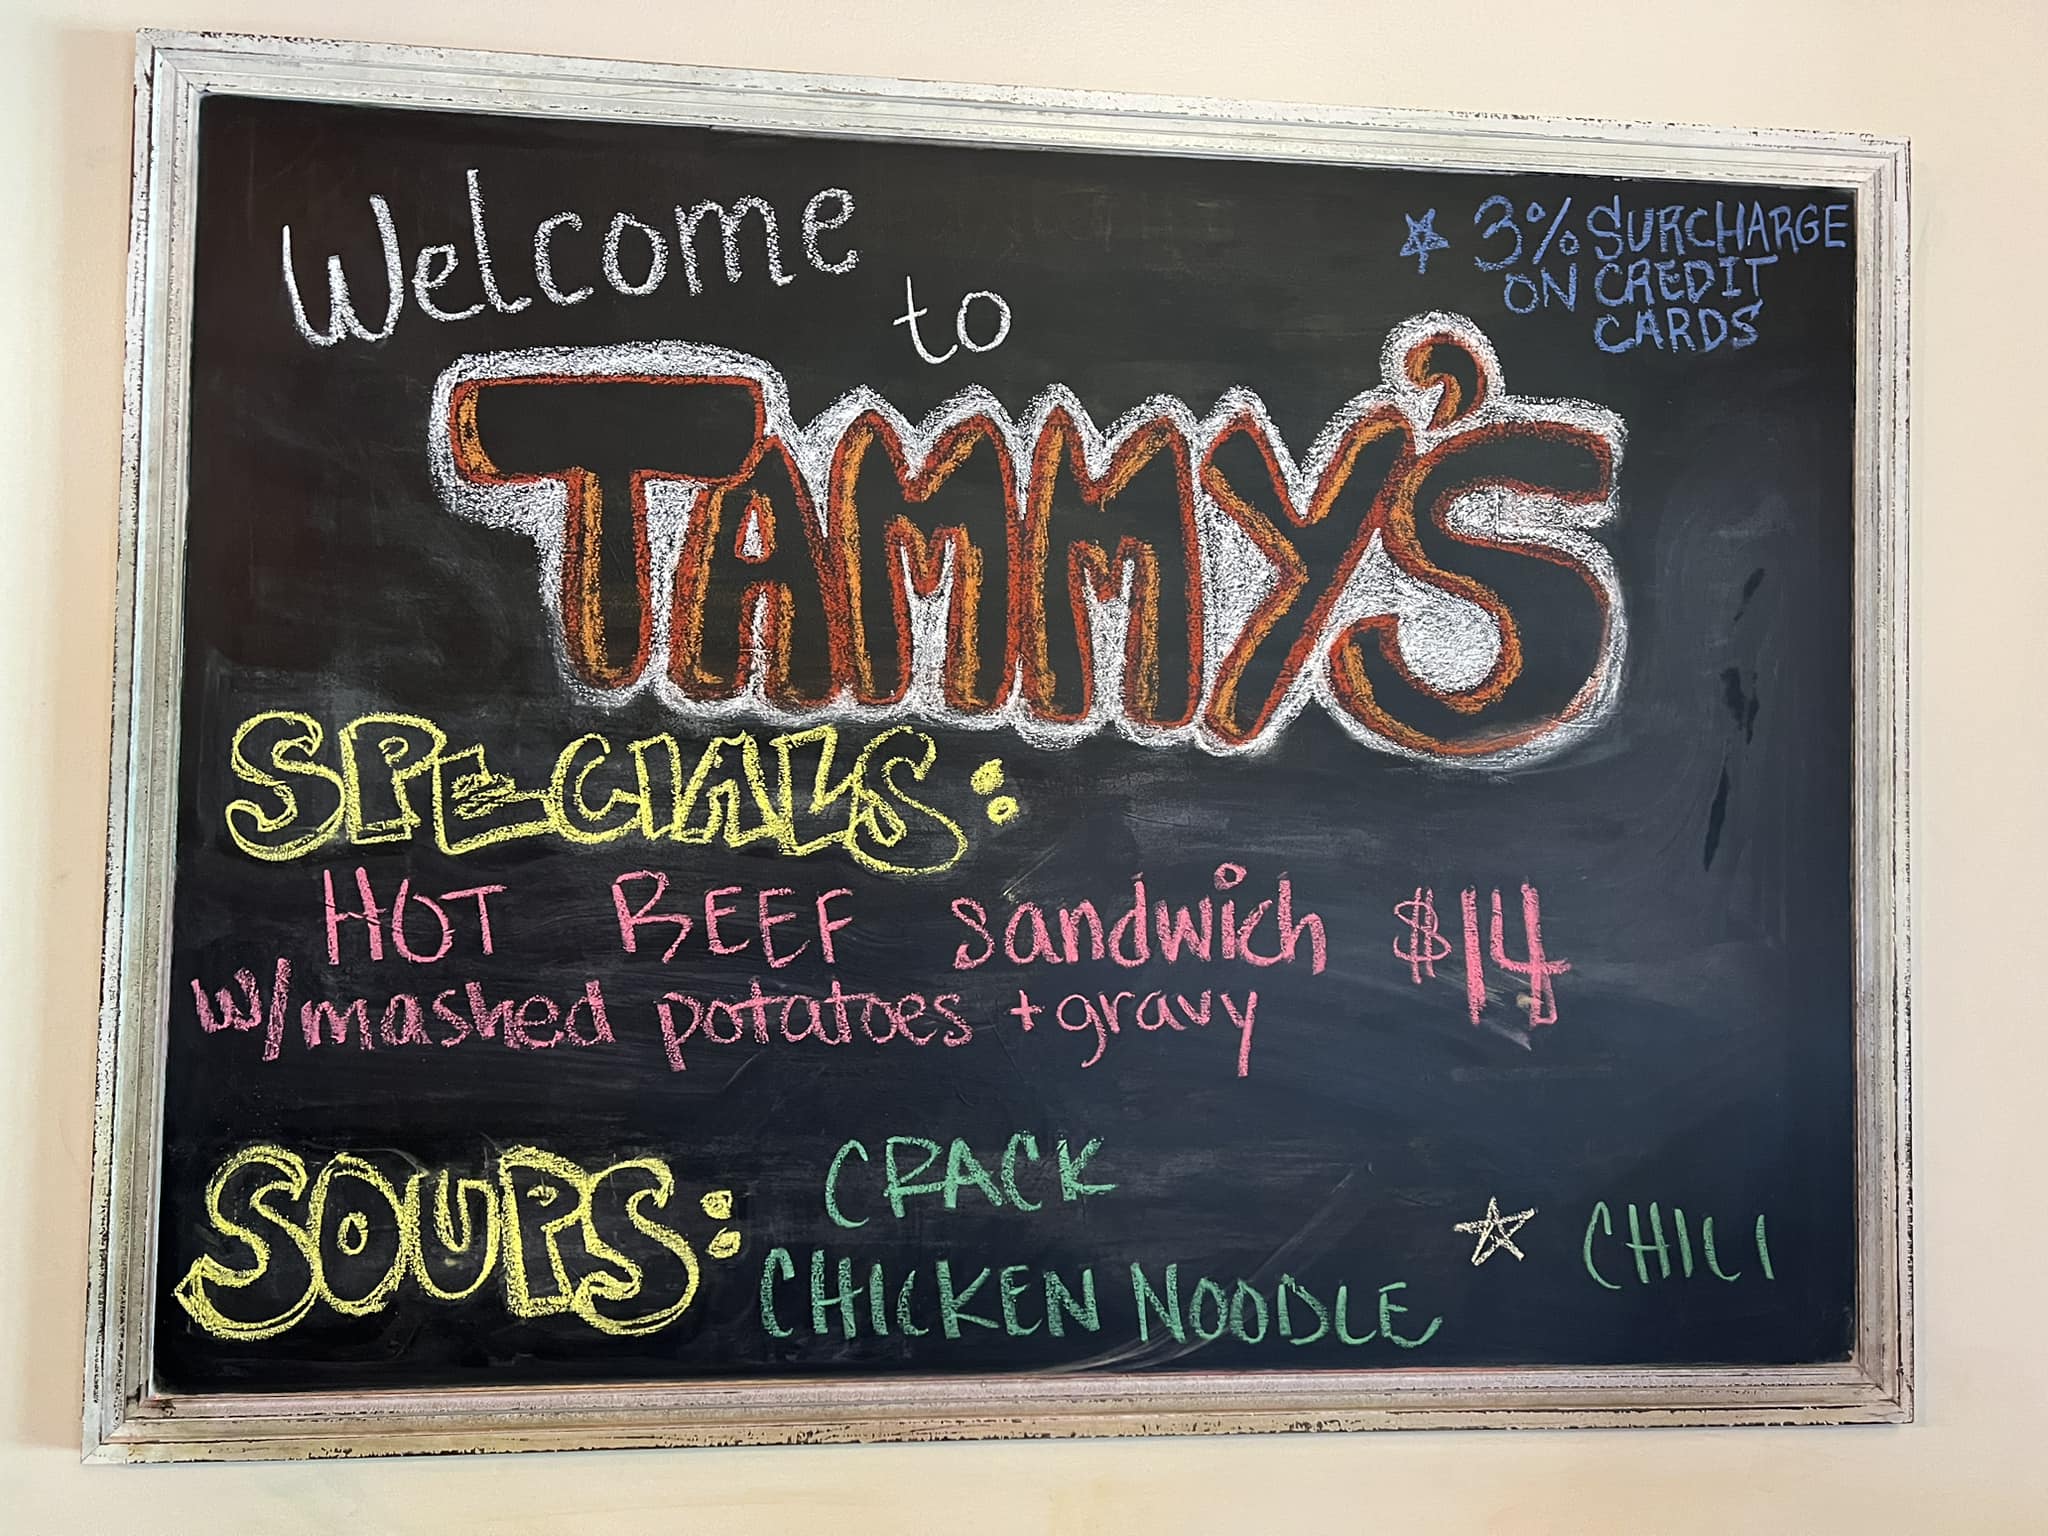 Welcome
to
TAMMY'S
3% SURCHARGE
ON CREDIT
CARDS
SPECIALS:
HOT BEEF sandwich $14
w/mashed potatoes + gravy
SOUPS:
CRACK
CHICKEN NOODLE
CHILI